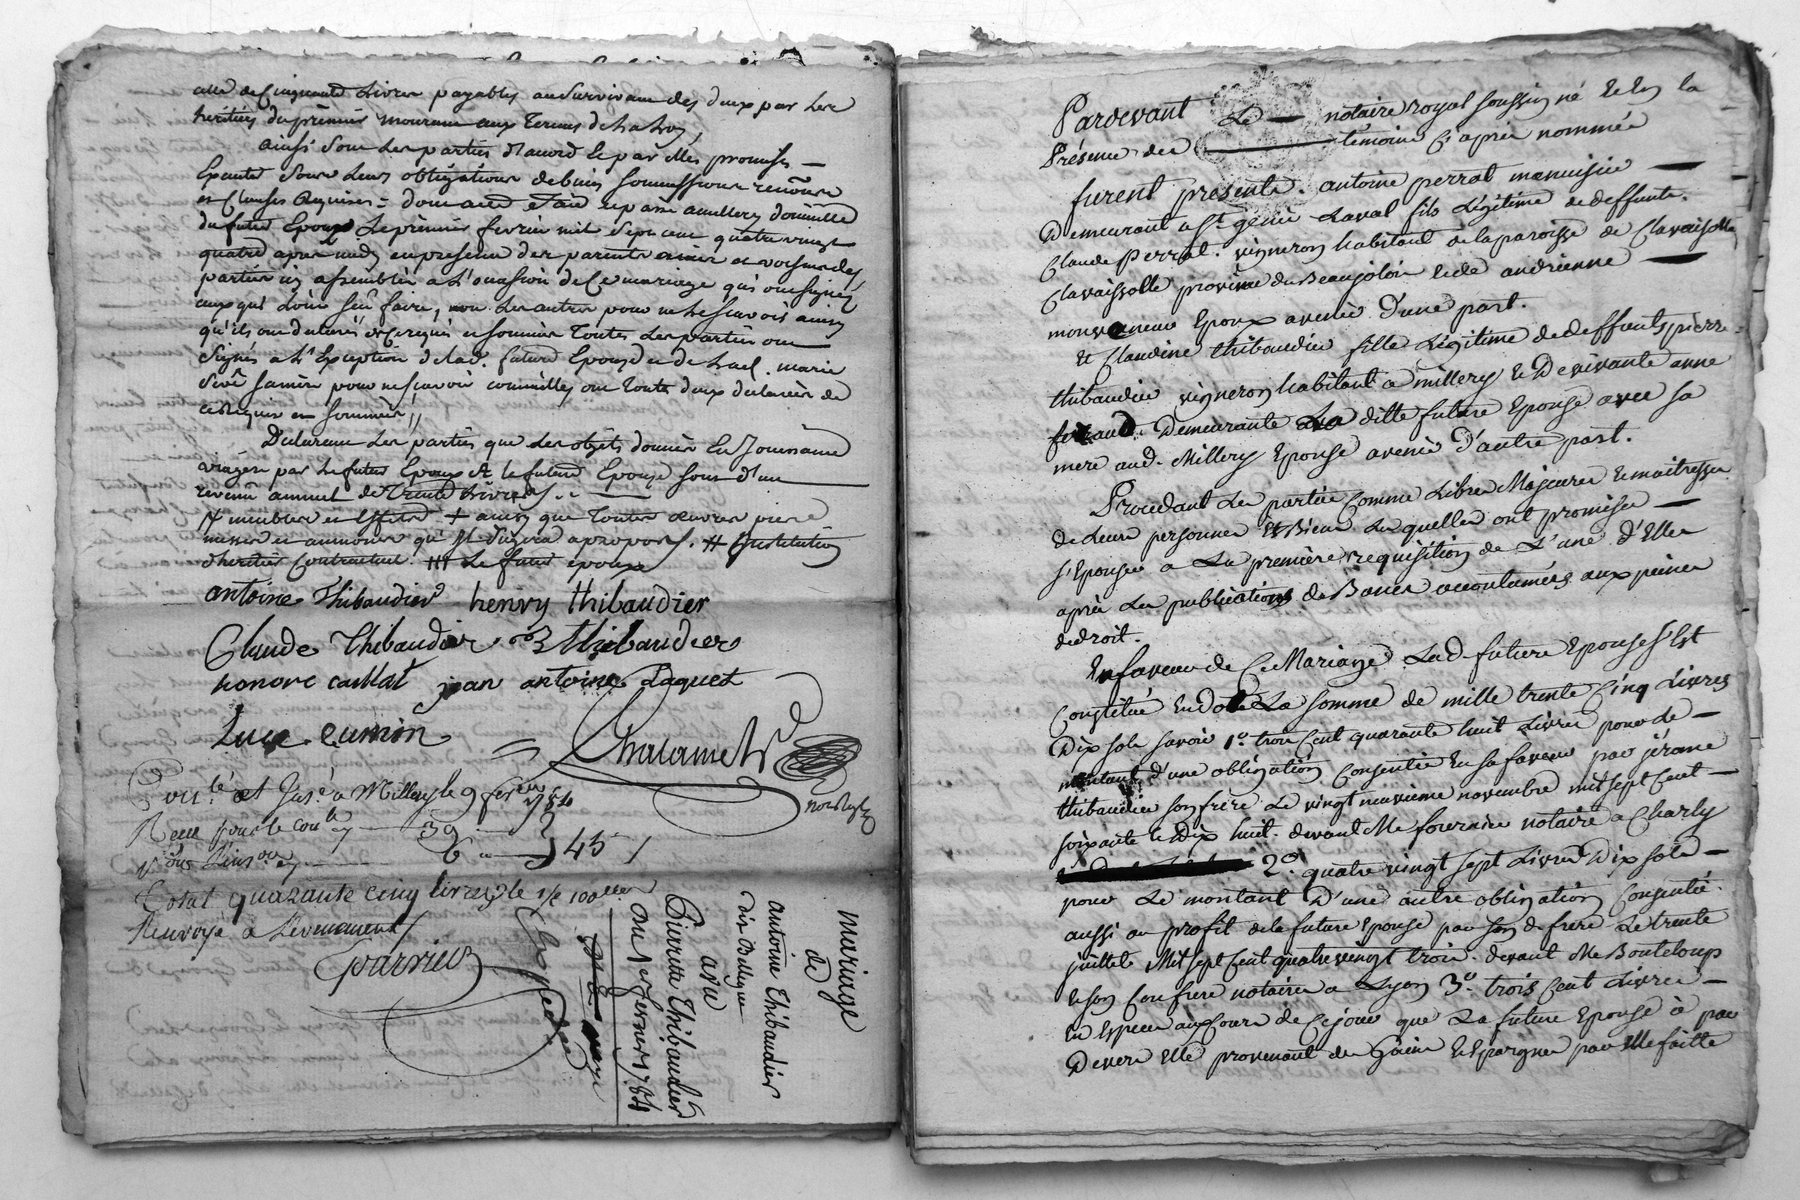 celle de Cinquante Livres payables au Survivant des deux par les
héritiers du prémier mourant aux Termes de la Loy,
ainsi Sont Les parties d'acord Et par Elles promises
Exécuter Sous Leurs obligations de biens soumissions renonce
et Clauses Requises = dont acte fait et passé a millery domicille
du futur Epoux Le prémier fevrier mil sept cent quatre vingt
quatre après midy en présence des parents amis et voisins des
parties icy assemblés a L'occasion de Ce mariage qui ont signés
ceux qui L'ont sçû faire, non Les autres pour ne Le sçavoir ainsy
qu'ils ont déclarés de ce requis et sommés Toutes Les parties ont
Signés a L'Exception de la d. future Epouse et de lad. marie
sa mère pour ne sçavoir ont Toutes deux déclarés de
ce Requis et Sommés //
Déclarent Les parties que Les objets donnés En Jouissance
viagère par Le futur Epoux à la future Epouse sont d'un
revenu annuel de Trente Livres
# meubles et Effets + ainsy que Toutes œuvres pies
messes et aumones qu'Il Jugera apropos. # Institution
d'heritier Contractuel. ### Le futur époux
antoine Thibaudier henry thibaudier
Claude Thibaudier B thibaudier
honoré caillat jean antoine Paquet
Luc cumin
Chalamel
notaire
Conr.lé et Insé. à Millery le 9 fevrier 1784
Reçu pour le conle. 39
6
45
Total quarante cinq livres
Renvoyé à L'évenement
Parrieu
mariage
de
antoine Thibaudier
dit Bellegarde
avec
Pierrette Thibaudier
du 1er fevrier 1784
Expediée
Pardevant Le notaire royal soussigné Et En la
Présence des témoins Cy après nommés
furent présents. antoine perrat menuisier
Demeurant a St. genis Laval fils Légitime de deffunts
Claude perrat. vigneron habitant de la paroisse de Claveisolle
Claveissolle province du Beaujolois et de andrienne
monvaneur Epoux avenir D'une part.
Et Claudine thibaudier fille Légitime de deffunts pierre
thibaudier vigneron habitant a millery Et De vivante anne
Demeurante La ditte future Epouse avec sa
mere aud. Millery Epouse avenir d'autre part.
Procédant Les parties Comme Libres Majeures Et maitresses
de Leurs personnes Et Biens Lesquelles ont promises
s'Epouser a La première requisition de L'une d'Elles
après Les publications de Bancs accoutumées aux peines
de droit.
En faveur de Ce Mariage Lad. future Epouse s'Est
Constituée En dot La somme de mille trente Cinq Livres
Dix sols savoir 1o. trois Cent quarante huit Livres pour Le
montant d'une obligation Consentie En sa faveur par jérome
thibaudier son frère Le vingt neuvieme novembre mil sept Cent
soixante Et Dix huit. devant Me fournier notaire a Charly
2o. quatre vingt sept Livres Dix sols
pour Le montant D'une autre obligation Consentie
aussi au profit de la future Epouse par son d. frere Le trente
juillet Mil sept Cent quatre vingt trois. devant Me Bonteloup
Et son Confrere notaires a Lyon 3o. trois Cent Livres
En Especes aux Cours de Ce jour que La future Epouse à par
Devers Elle provenant de Gains Et Epargnes par Elle faitte